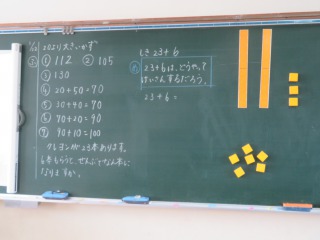 20より大きいかず
① 112 ② 105
③ 130
④ 20+50=70
⑤ 30+40=70
⑥ 70+20=90
⑦ 90+10=100
クレヨンが23本あります。
6本もらうと、ぜんぶでなん本に
なりますか。
しき 23+6
23+6は、どうやって
けいさんするだろう。
23+6=